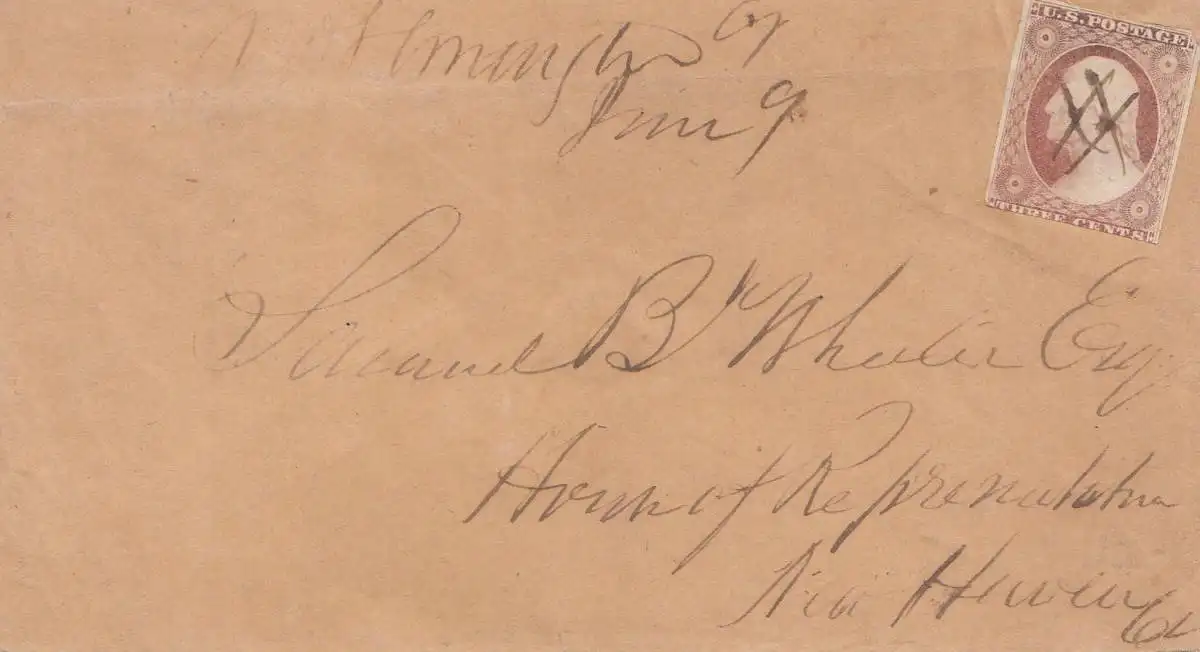 N Stonington Ct
June 9
U.S. POSTAGE
THREE CENTS
Samuel B Wheeler Esq
House of Representatives
New Haven Ct